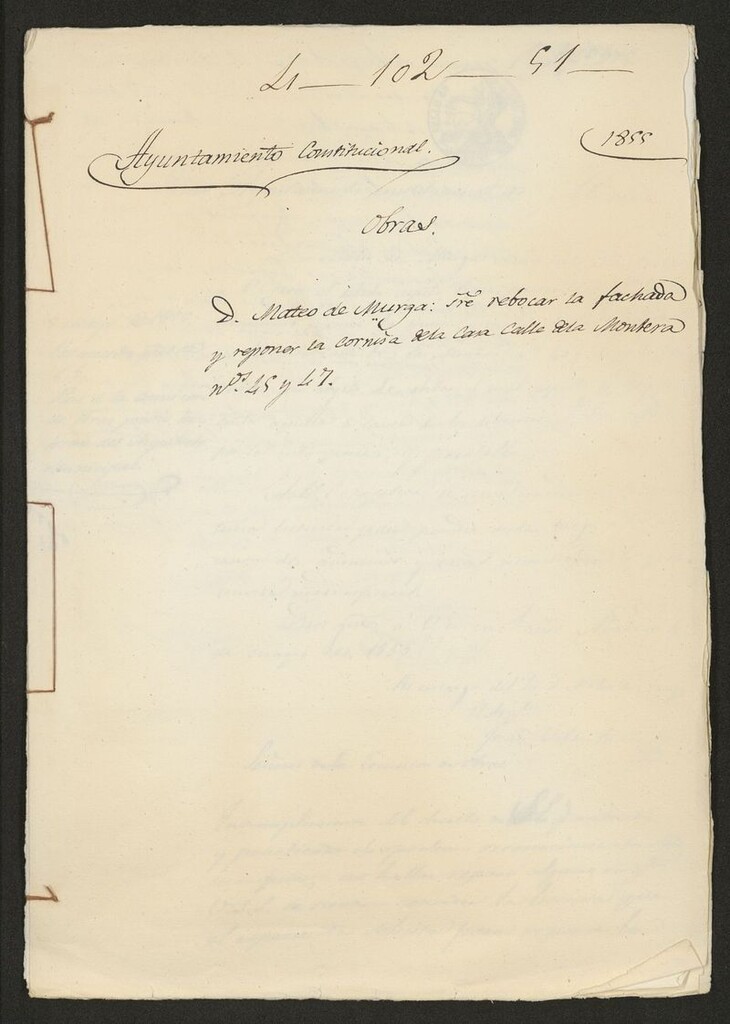 4 — 102 — 51 —
Ayuntamiento Constitucional.
1855
Obras.
D. Mateo de Murga: sre rebocar la fachada
y reponer la cornisa dela Casa Calle dela Montera
nos. 45 y 47.